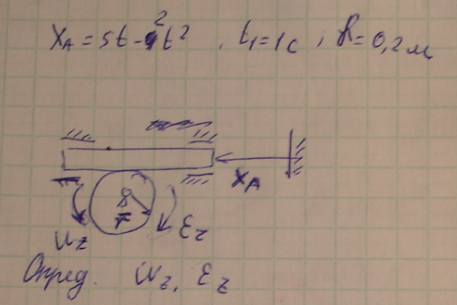 X_A = 5t - 2t² , t₁ = 1c ; R = 0,2 м
X_A
ω_z
ε_z
Опред. ω_z, ε_z